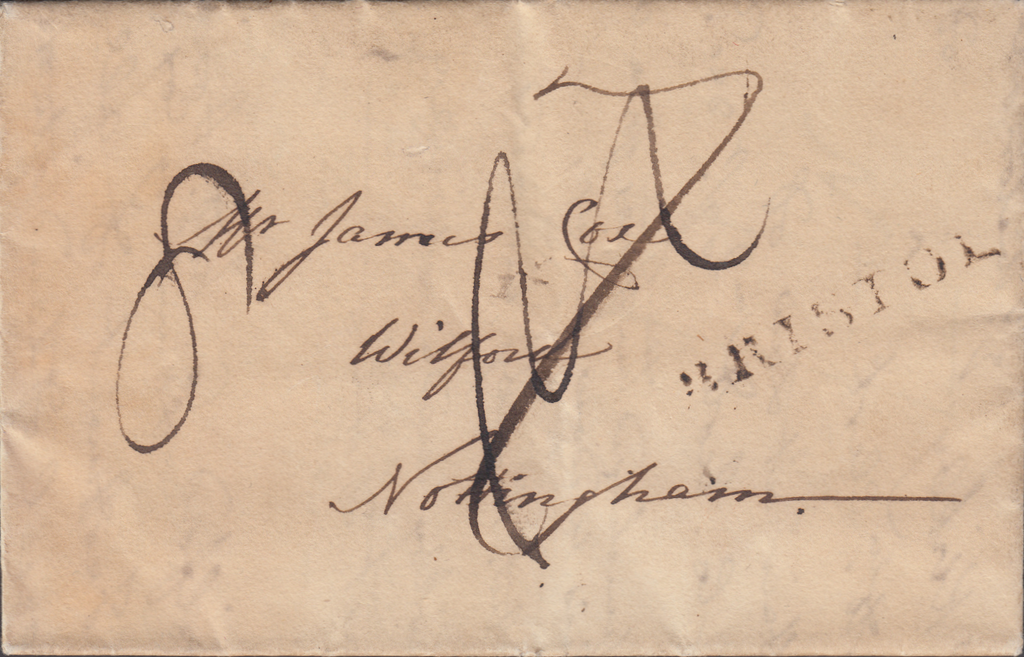 Mr James Cox
BRISTOL
Wilford
Nottingham